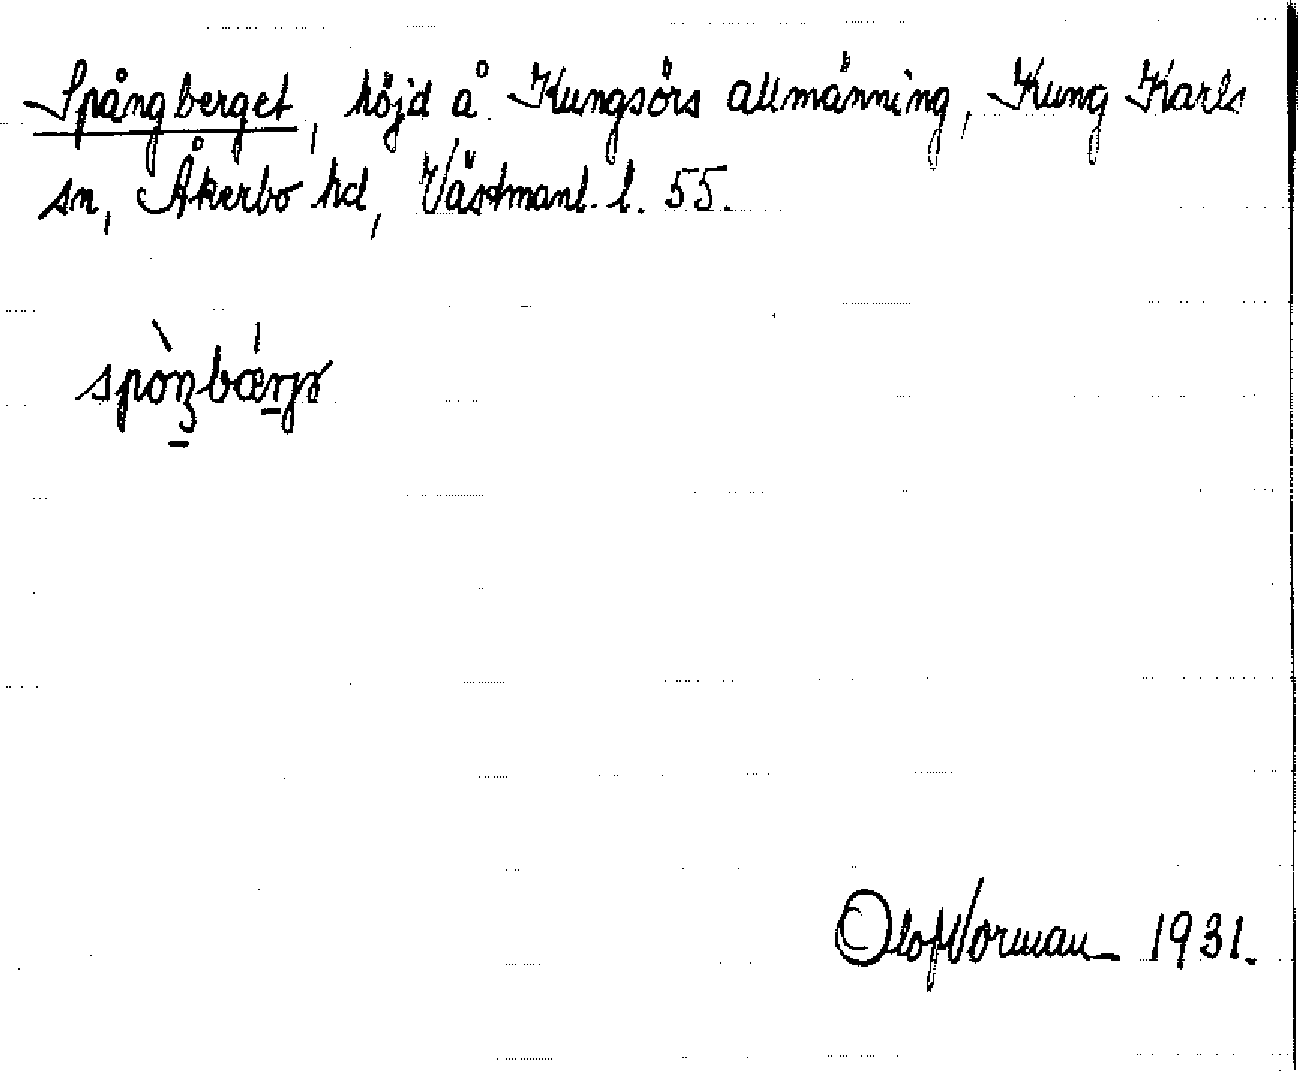 Spångberget, höjd å Kungsörs allmänning, Kung Karls
sn, Åkerbo hd, Västmanl. l. 55.
Olof Norman 1931.